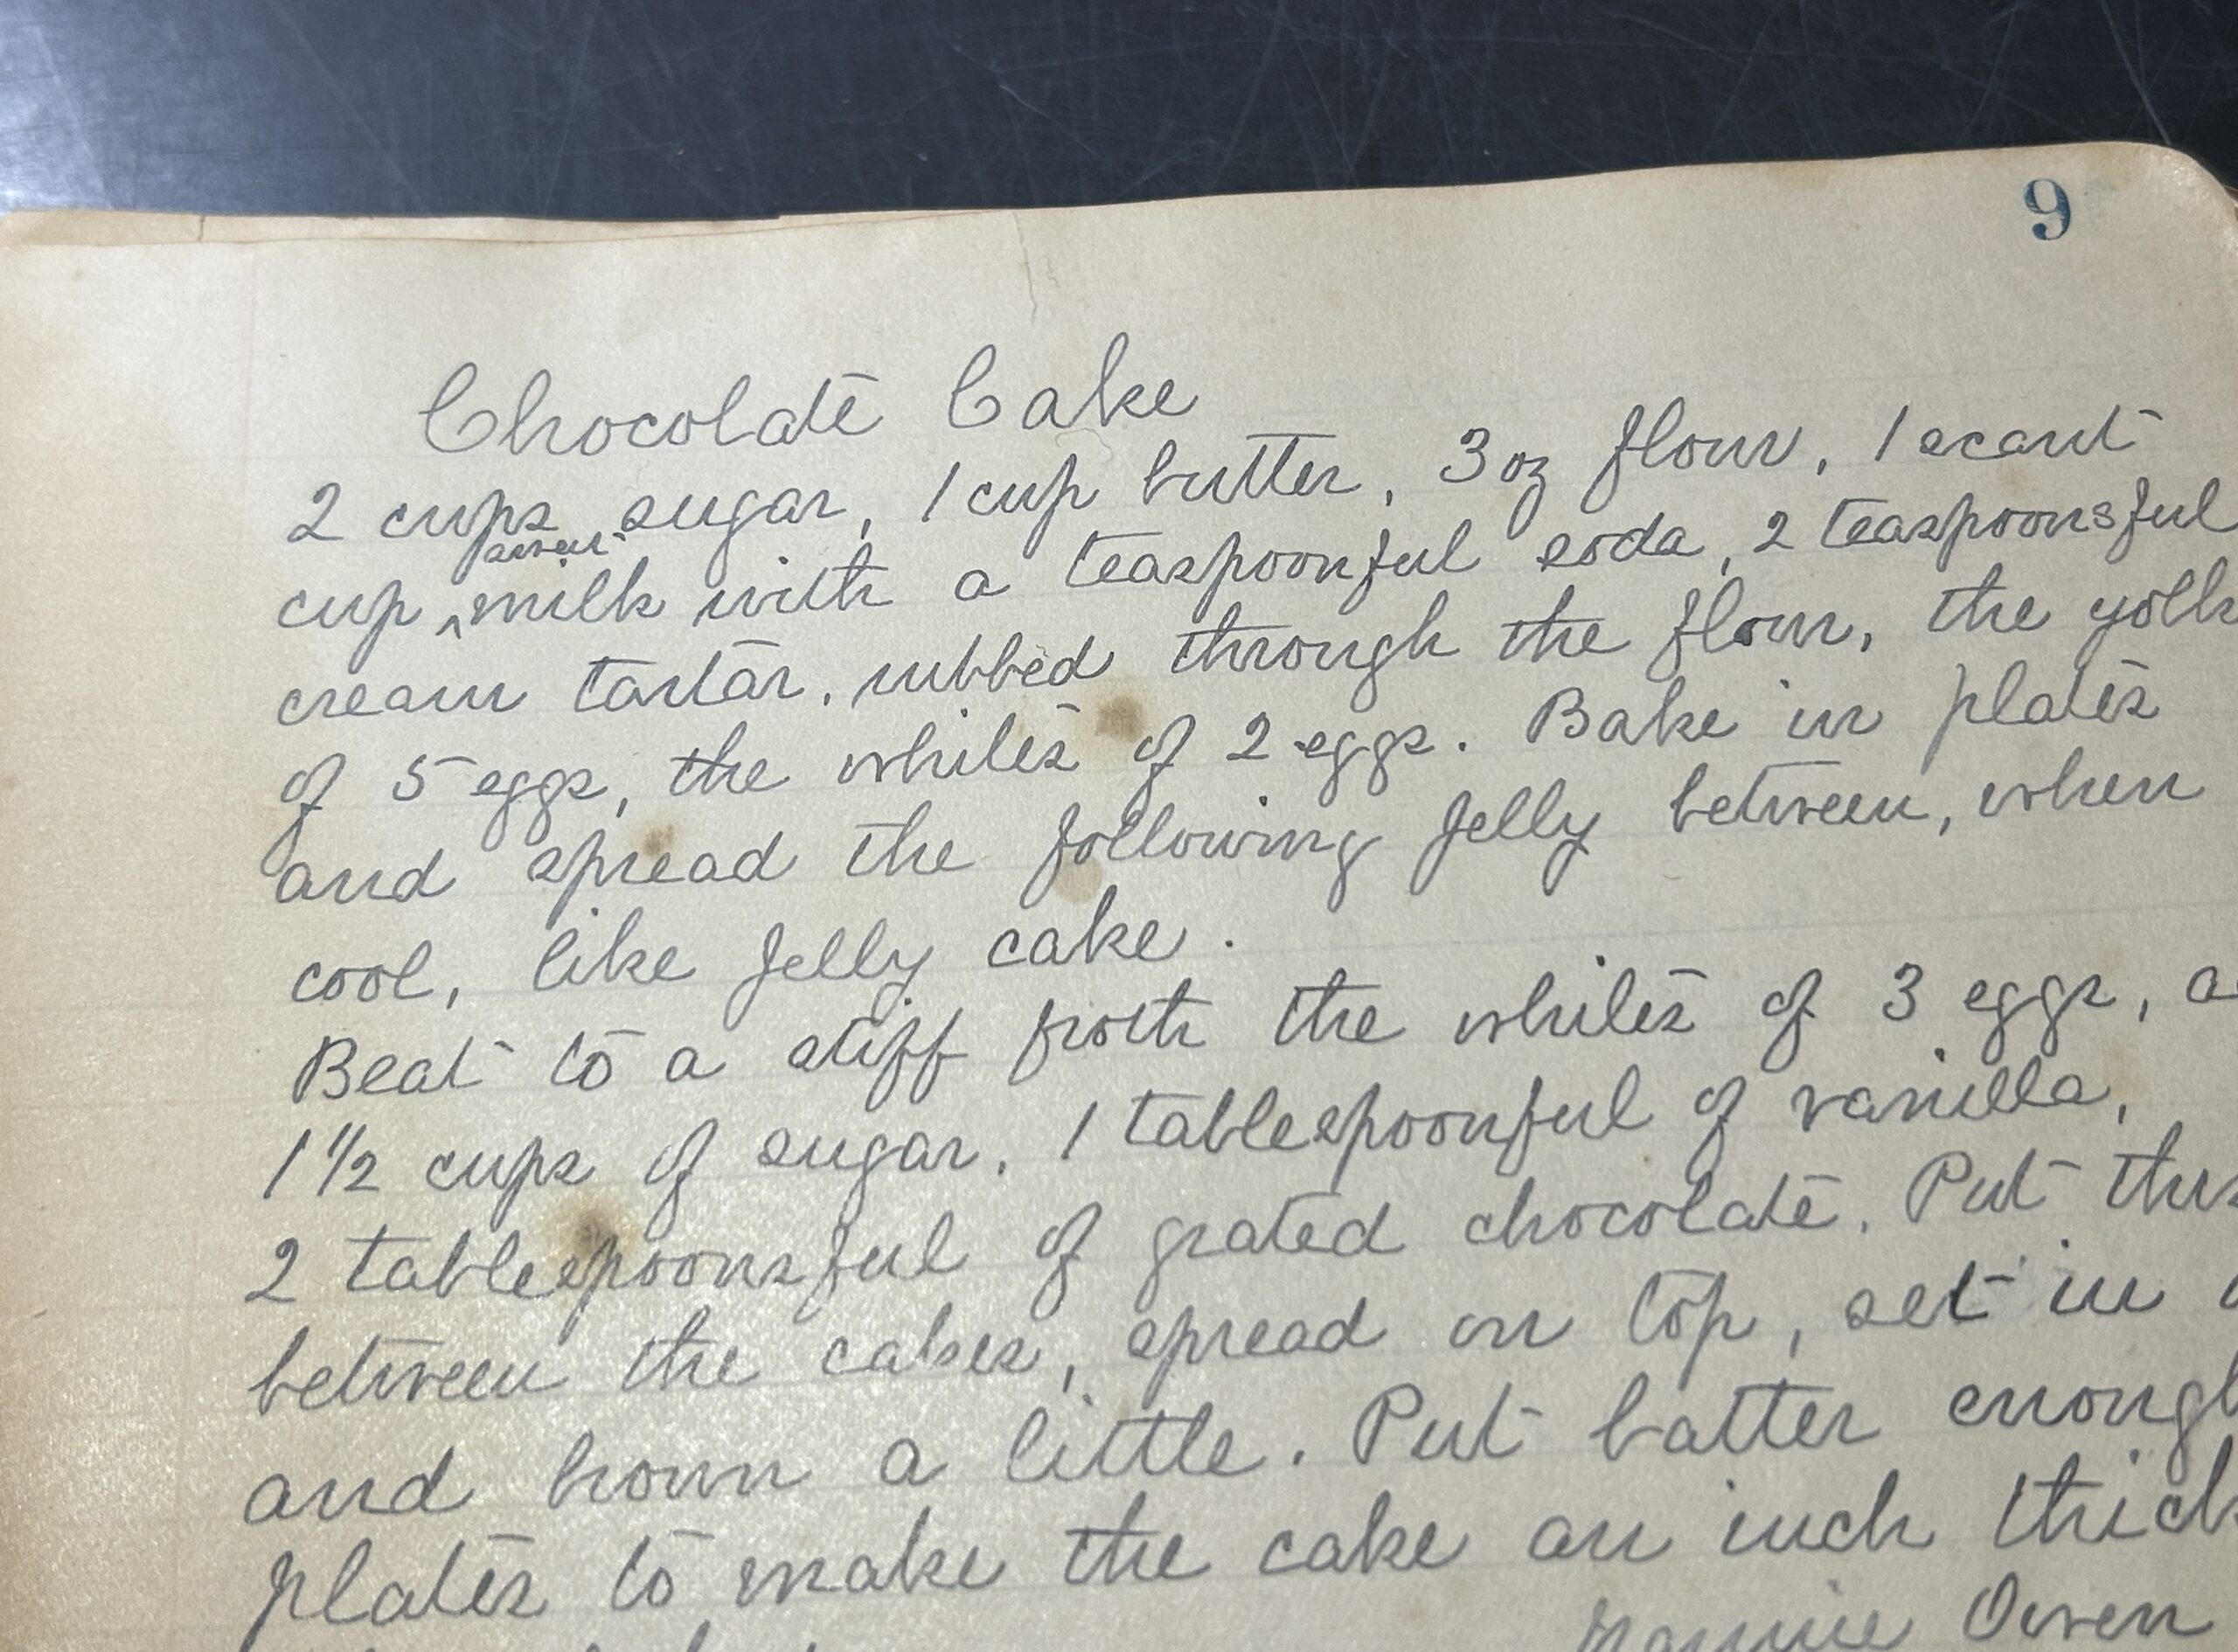 9
Chocolate Cake
2 cups sugar, 1 cup butter, 3 oz flour, 1 scant
sour
cup ^ milk with a teaspoonful soda, 2 teaspoonsful
cream tartar, rubbed through the flour, the yolk
of 5 eggs, the whites of 2 eggs. Bake in plates
and spread the following jelly between, when
cool, like jelly cake.
Beat to a stiff froth the whites of 3 eggs, a
1 1/2 cups of sugar, 1 tablespoonful of vanilla,
2 tablespoonsful of grated chocolate. Put this
between the cakes, spread on top, set in
and brown a little. Put batter enough
plates to make the cake an inch thick
Owen